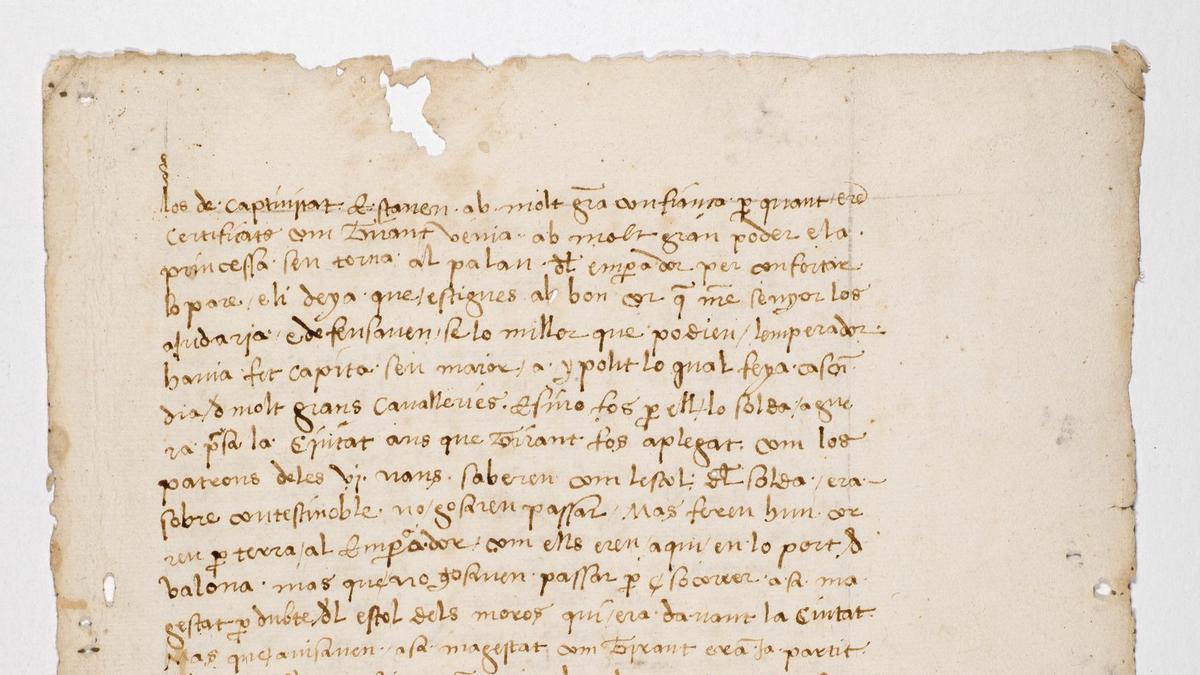 los de captiuitat · E stauen · ab · molt grã confiança ꝑ quant · erẽ
Certificats com Tirant venia · ab molt gran poder e la ·
princessa · sen torna · al palau · dl̃ emꝑador per confortar
lo pare · e li deya · que / estigues ab bon cor q̃ nr̃e senyor los
aiudaria · e defensauen · se lo millor que podien / lemperador ·
hauia · fet Capita · seu maior / a · ypolit lo qual feya · cascũ
dia / d molt grans Caualleries · E sino fos ꝑ ell / lo solda / ague
ra p̃sa la Ciutat ans que Tirant · fos aplegat · com los
patrons deles vj · naus · saberen com lestol · dl̃ solda · / era ·
sobre contestinoble · no / gosaren passar / Mas feren hun cor
reu ꝑ terra / al Emꝑador · com ells eren / aqui / en lo port / d
valona · mas que no gosauen · passar ꝑ socorrer · a sa ma
gestat ꝑ dubte / dl̃ estol dels moros qui / era · dauant la Ciutat
Mas que / auisauen · a sa magestat com Tirant erã ja · partit ·